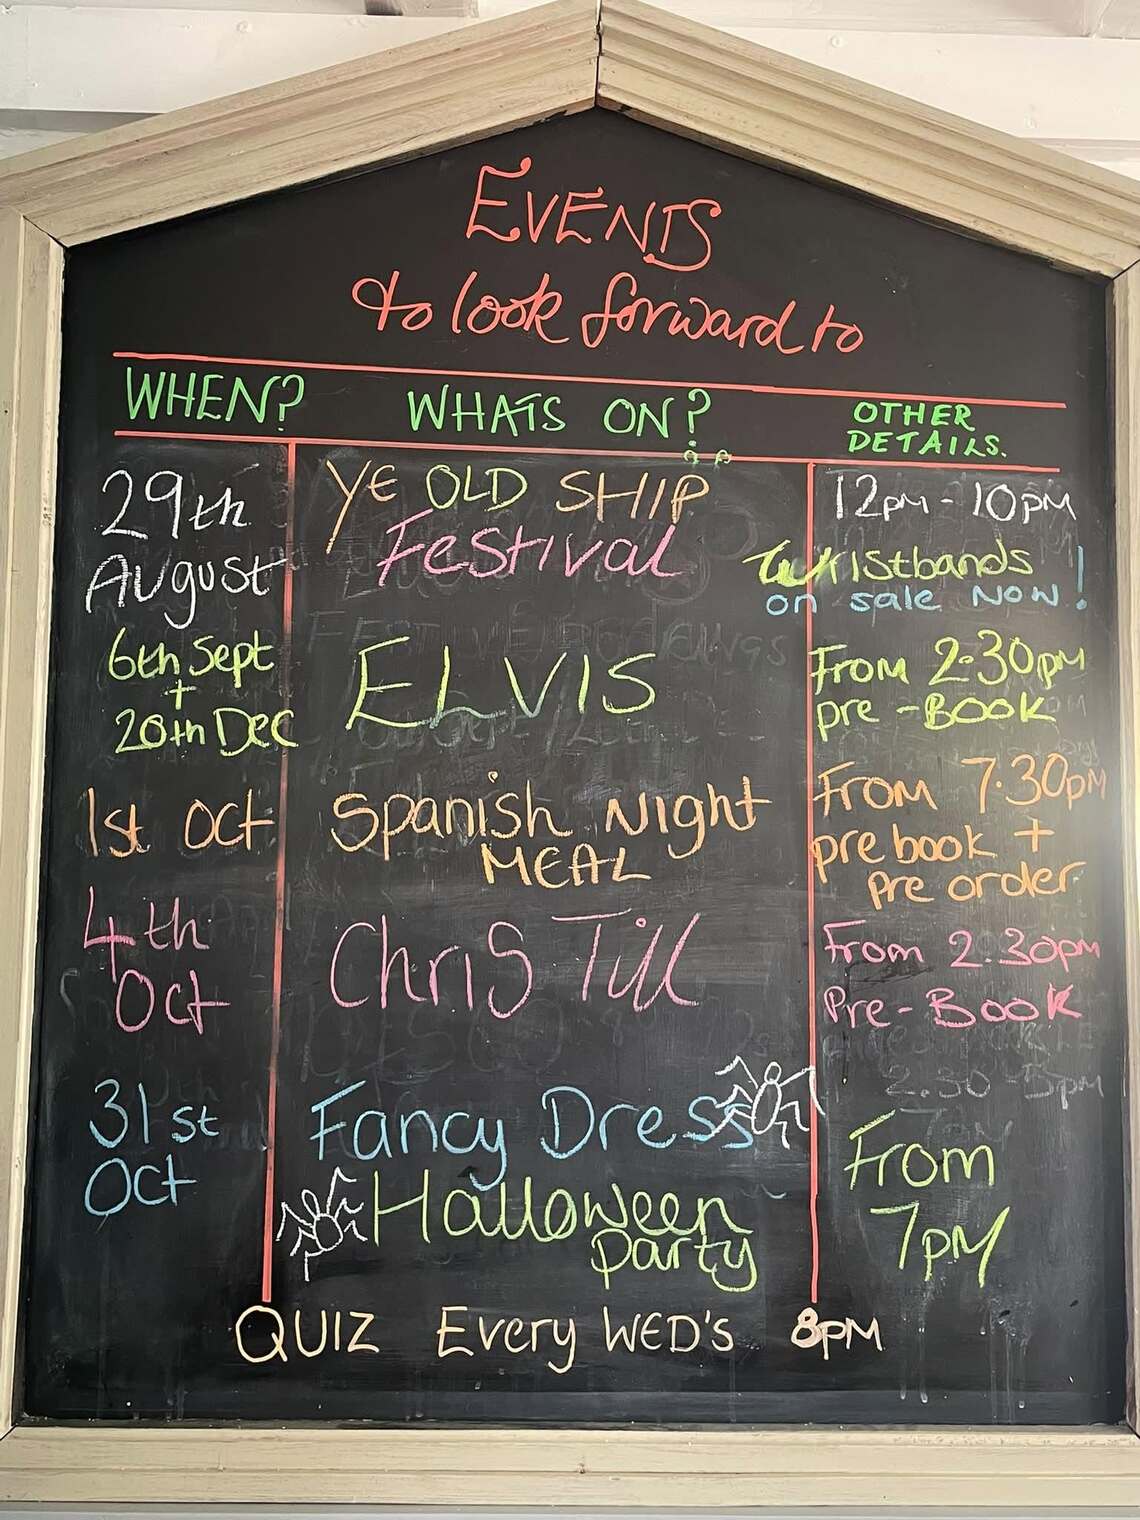 EVENTS
to look forward to
WHEN? WHATS ON? OTHER DETAILS.
29th August
YE OLD SHIP
Festival
12pm - 10pm
Wristbands
on sale NOW!
6th Sept
+
20th Dec
ELVIS
From 2.30pm
pre-BOOK
1st Oct
Spanish Night
MEAL
From 7.30pm
pre book +
pre order
4th
Oct
Chris Till
From 2.30pm
Pre-BOOK
2.30 - 5pm
31st
Oct
Fancy Dress
Halloween
party
From
7pm
QUIZ Every WED'S 8PM